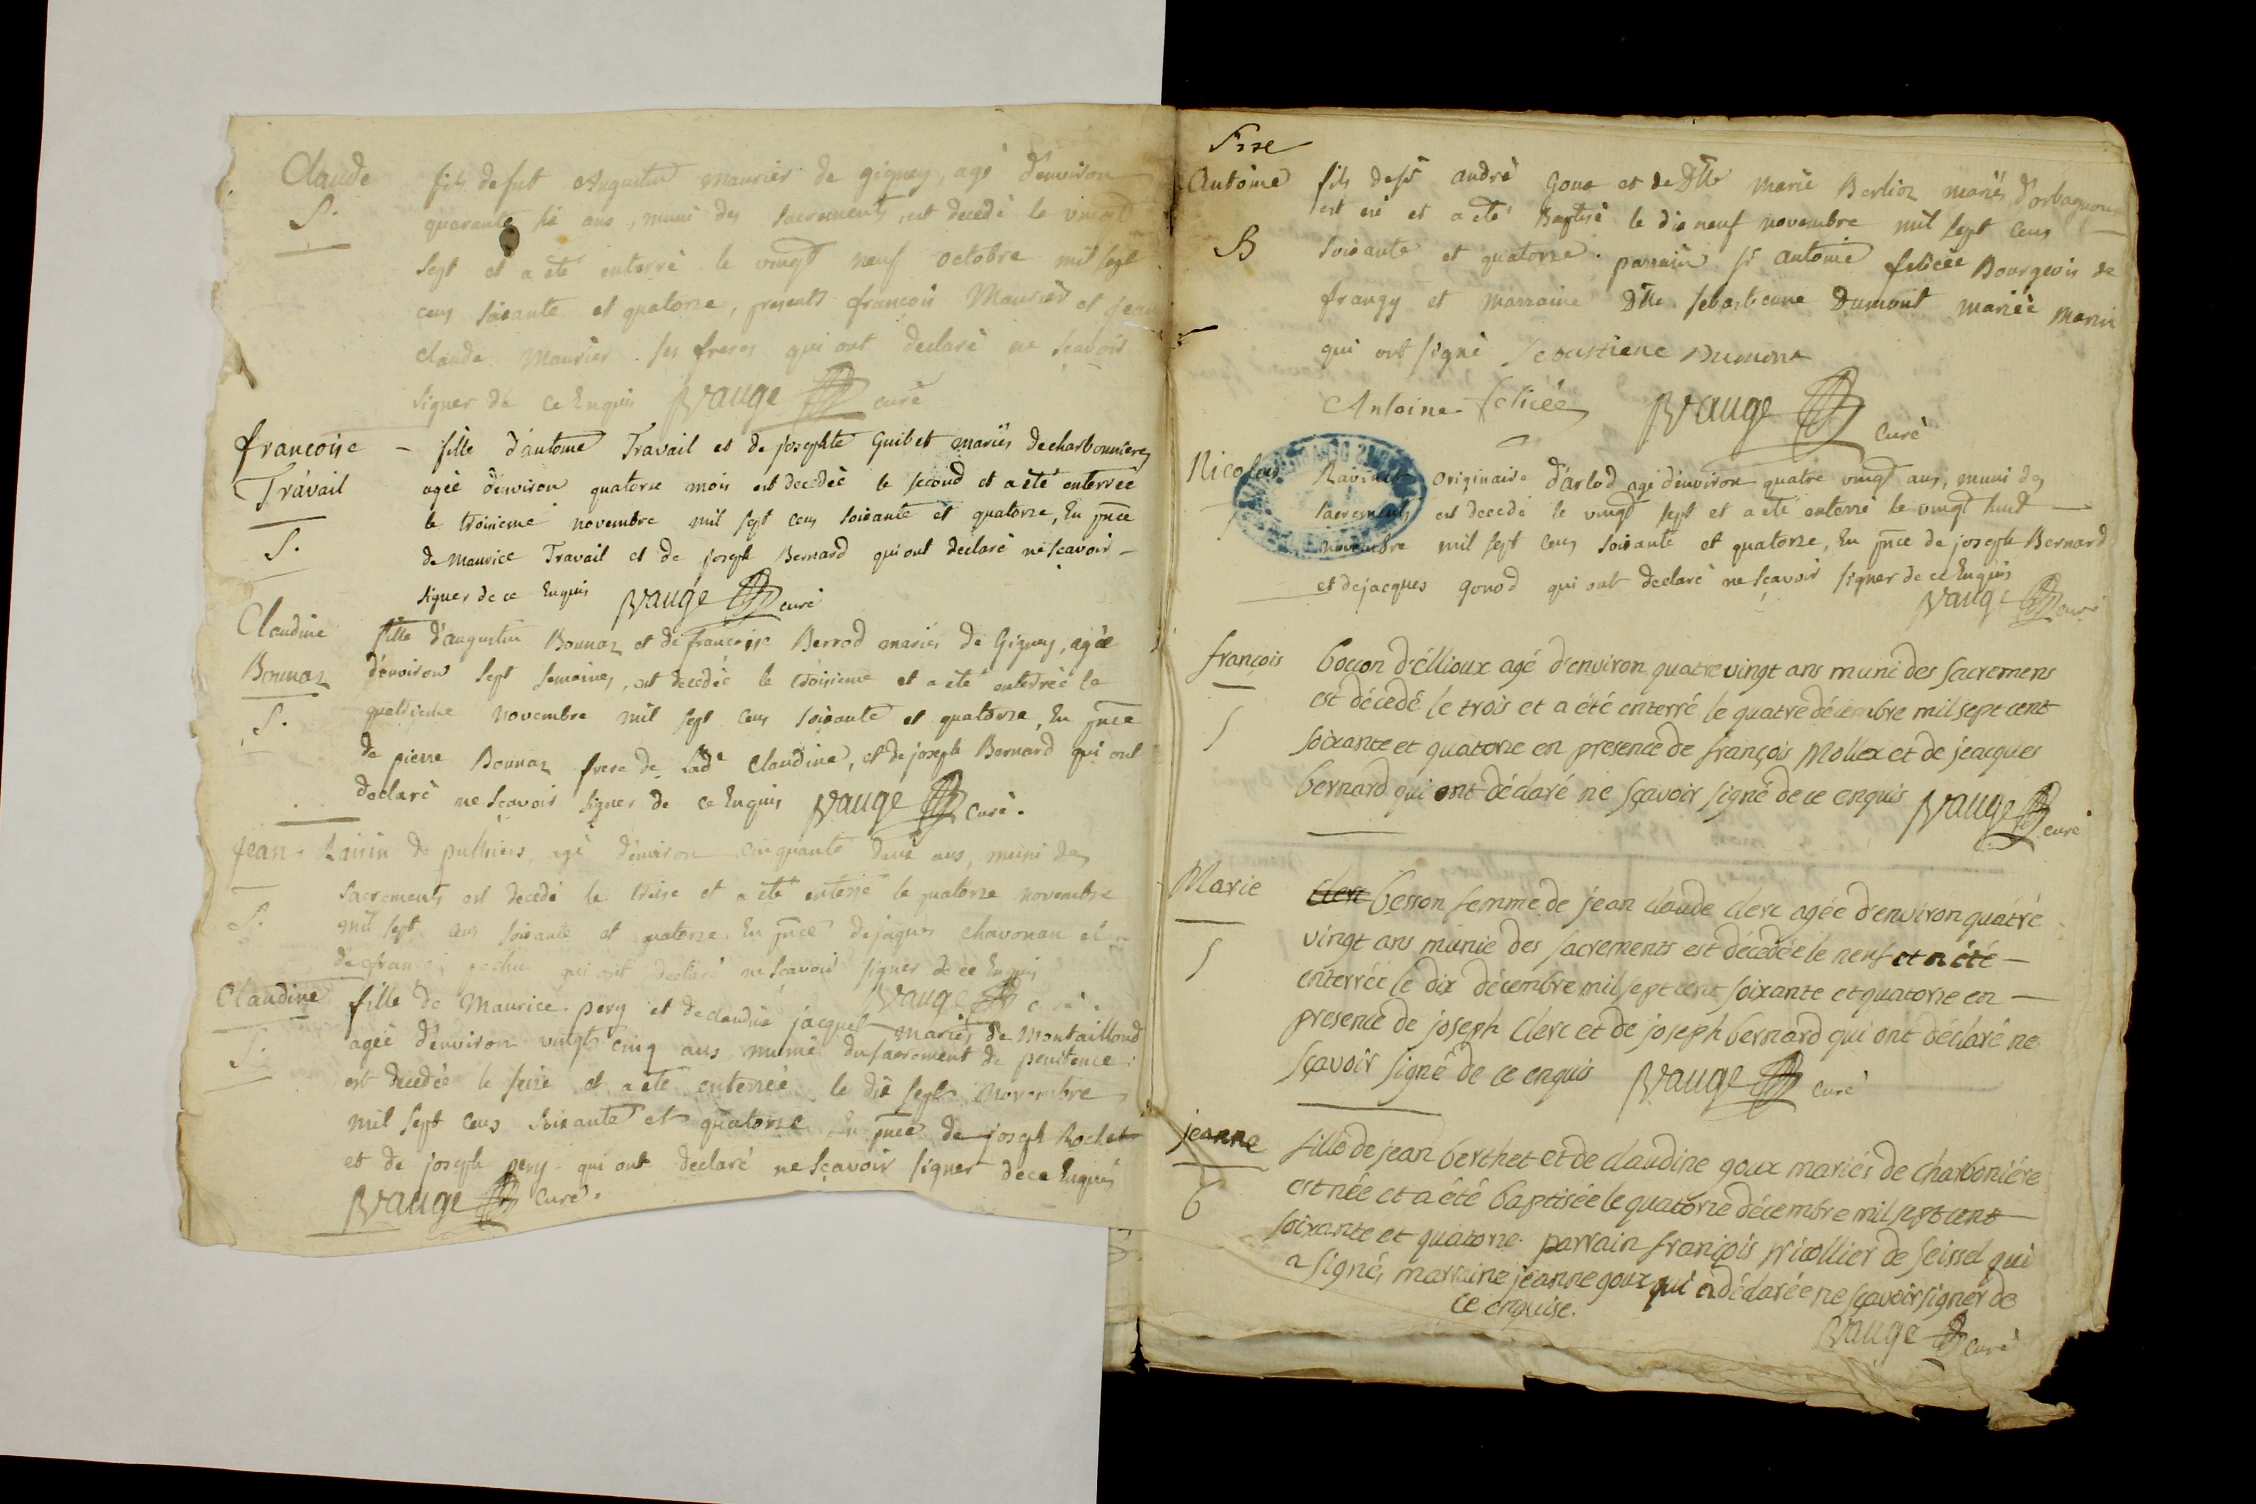 Claude fils de fut Augustin maurier de gigney, agé d'environ
S. quarante sis ans, muni des sacrements, est decedé le vingt
sept et a été enterré le vingt neuf octobre mil sept
cens soixante et quatorze, presents françois Maurier et jean
claude maurier ses freres qui ont declaré ne sçavoir
signer de ce Enquis Rvauge curé
françoise fille d'antoine Travail et de josephte Guibet mariés de charbonniere
Travail agée d'environ quatorze mois est decedée le second et a été enterrée
le troisieme novembre mil sept cens soixante et quatorze, En pñce
S. de Maurice Travail et de joseph Bernard qui ont declaré ne sçavoir
signer de ce Enquis Rvauge curé
Claudine fille d'augustin Bonnaz et de françoise Berrod mariés de Gigney, agée
Bonnaz d'environ sept semaines, est decedée le troisieme et a été enterrée le
S. quatrieme novembre mil sept cens soixante et quatorze, En pñce
de pierre Bonnaz frere de Lad.e Claudine, et de joseph Bernard qui ont
declaré ne sçavoir signer de ce Enquis Rvauge curé.
jean Raisin de puthiers, agé d'environ cinquante deux ans, muni des
sacrements est decedé le treise et a été enterré le quatorze novembre
S. mil sept cens soixante et quatorze En pñce de jaques chavonan et
de françois qui ont declaré ne sçavoir signer de ce Enquis
Rvauge curé.
Claudine fille de Maurice pery et de claudine jacquet mariés de Montaillond
S. agée d'environ vingt cinq ans munie du sacrement de penitence
est decedée le seize et a été enterrée le dix sept novembre
mil sept cens soixante et quatorze En pñce de joseph Rochet
et de joseph pery qui ont declaré ne sçavoir signer de ce Enquis
Rvauge curé.
Antoine fils de sr andré Goux et de Dlle Marie Berlioz mariés d'orbagnoux
est né et a été Baptisé le dix neuf novembre mil sept cens
B soixante et quatorze. parrain sr antoine felicée Bourgeois de
frangy et marraine Dlle sebastienne Dumont mariée Marin
qui ont signé Sebastiene Dumont
Antoine felicée Rvauge curé
Nicolas originaire d'arlod agé d'environ quatre vingt ans, muni des
sacrements est decedé le vingt sept et a été enterré le vingt huit
novembre mil sept cens soixante et quatorze, En pñce de joseph Bernard
et de jacques Gonod qui ont declaré ne sçavoir signer de ce Enquis
Rvauge curé
françois bocon d'éllioux agé d'environ quatre vingt ans muni des sacremens
est décedé le trois et a été enterré le quatre décembre mil sept cent
S soixante et quatorze en presence de françois Mollex et de jeacques
bernard qui ont déclaré ne sçavoir signé de ce enquis Rvauge curé
Marie clerc besson femme de jean claude clerc agée d'environ quatre
vingt ans munie des sacrements est décedée le neuf et a été
S enterrée le dix décembre mil sept cent soixante et quatorze en
presence de joseph clerc et de joseph bernard qui ont déclaré ne
sçavoir signé de ce enquis Rvauge curé
jeanne fille de jean berthet et de claudine goux mariés de charboniére
est née et a été baptisée le quatorze décembre mil sept cent
b soixante et quatorze. parrain françois Nicollier de seissel qui
a signé, marraine jeanne goux qui a déclarée ne sçavoir signer de
ce enquise.
Rvauge curé